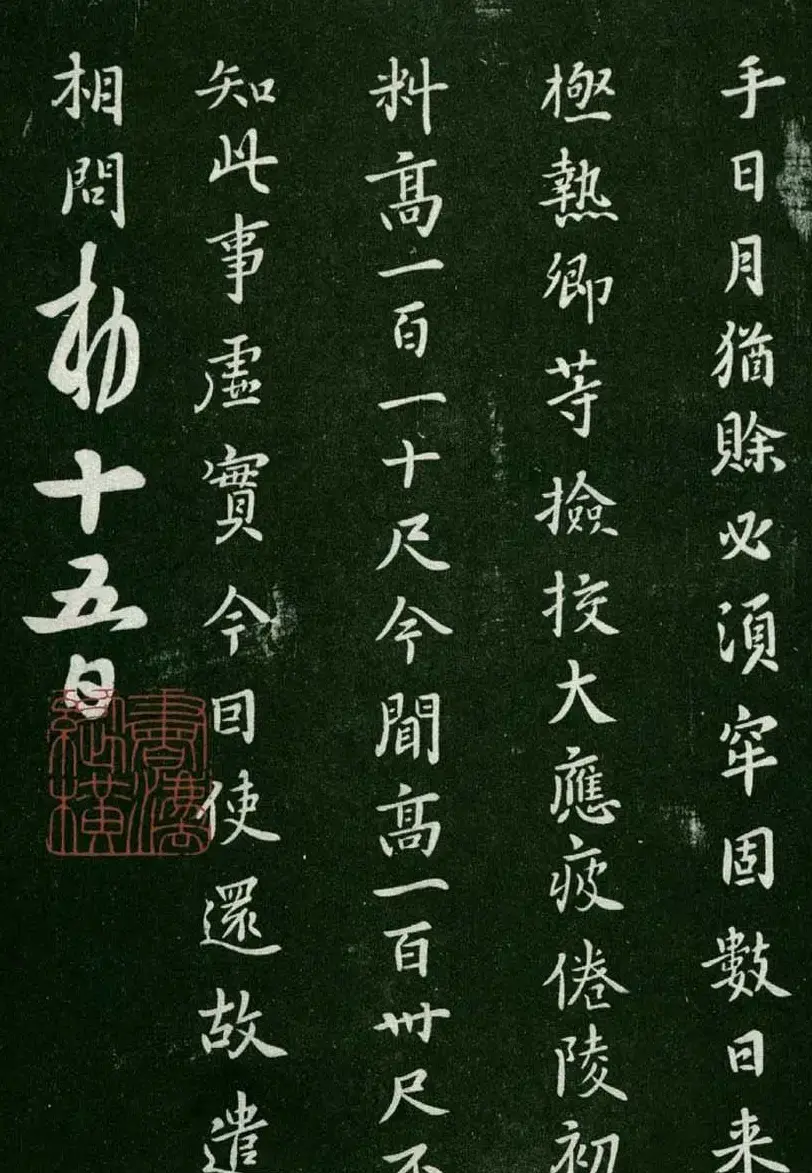 手日月猶賒必須牢固數日来
極熱卿等撿挍大應疲倦陵初
料高一百一十尺今聞高一百卅尺不
知此事虛實今因使還故遣
相問勅十五日
書灋縱橫